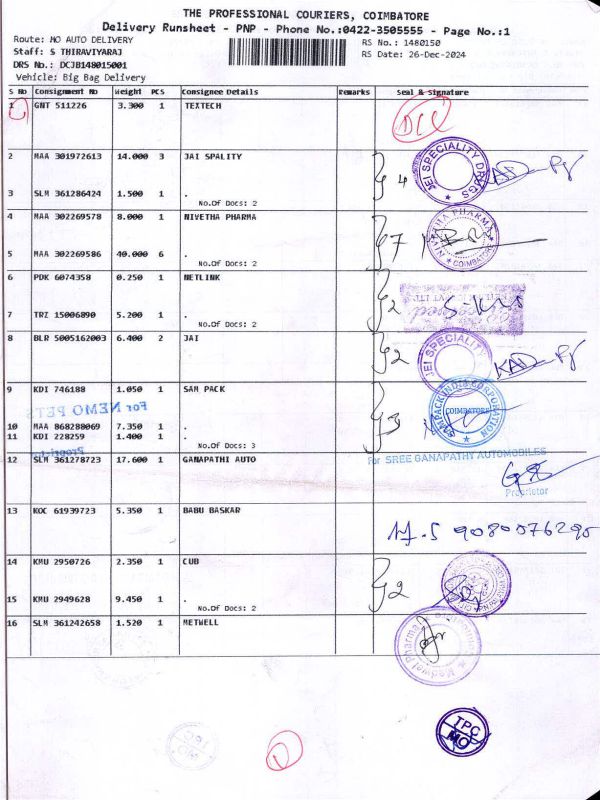 THE PROFESSIONAL COURIERS, COIMBATORE
Delivery Runsheet - PNP - Phone No.:0422-3505555 - Page No.:1
Route: MO AUTO DELIVERY
RS No.: 1480150
Staff: S THIRAVIYARAJ
RS Date: 26-Dec-2024
DRS No.: DCJB148015001
Vehicle: Big Bag Delivery
S No Consignment No Weight PCS Consignee Details Remarks Seal & Signature
1 GNT 511226 3.300 1 TEXTECH
2 MAA 301972613 14.000 3 JAI SPALITY
JEI SPECIALITY DRUGS
4
3 SLM 361286424 1.500 1 .
No.Of Docs: 2
4 MAA 302269578 8.000 1 NIVETHA PHARMA
PHARMA
COIMBATORE
7
5 MAA 302269586 40.000 6 .
No.Of Docs: 2
6 PDK 6074358 0.250 1 NETLINK
2
7 TRZ 15006890 5.200 1 .
No.Of Docs: 2
8 BLR 5005162003 6.400 2 JAI
JEI SPECIALITY
2
9 KDI 746188 1.050 1 SAM PACK
SAMPACK INDIA CORPORATION
COIMBATORE
3
For NEMO PETS
10 MAA 868288069 7.350 1 .
11 KDI 228259 1.400 1 .
No.Of Docs: 3
12 SLM 361278723 17.600 1 GANAPATHI AUTO
For SREE GANAPATHY AUTOMOBILES
Proprietor
13 KOC 61939723 5.350 1 BABU BASKAR
9080576295
14 KMU 2950726 2.350 1 CUB
2
15 KMU 2949628 9.450 1 .
No.Of Docs: 2
16 SLM 361242658 1.520 1 METWELL
TPC
MO
TPC
MO